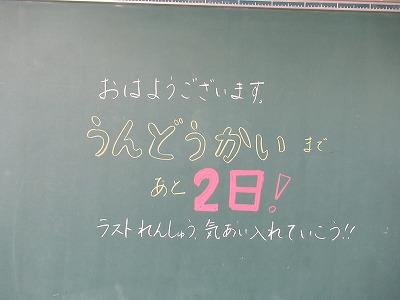 おはようございます。
うんどうかいまで
あと2日!
ラストれんしゅう、気あい入れていこう!!